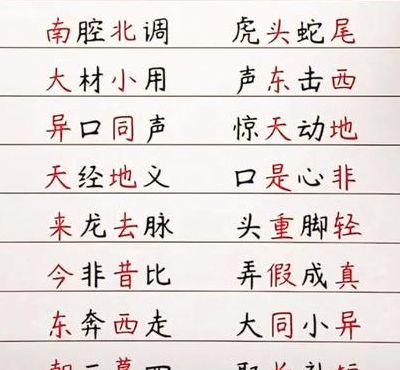 南腔北调 虎头蛇尾
大材小用 声东击西
异口同声 惊天动地
天经地义 口是心非
来龙去脉 头重脚轻
今非昔比 弄假成真
东奔西走 大同小异